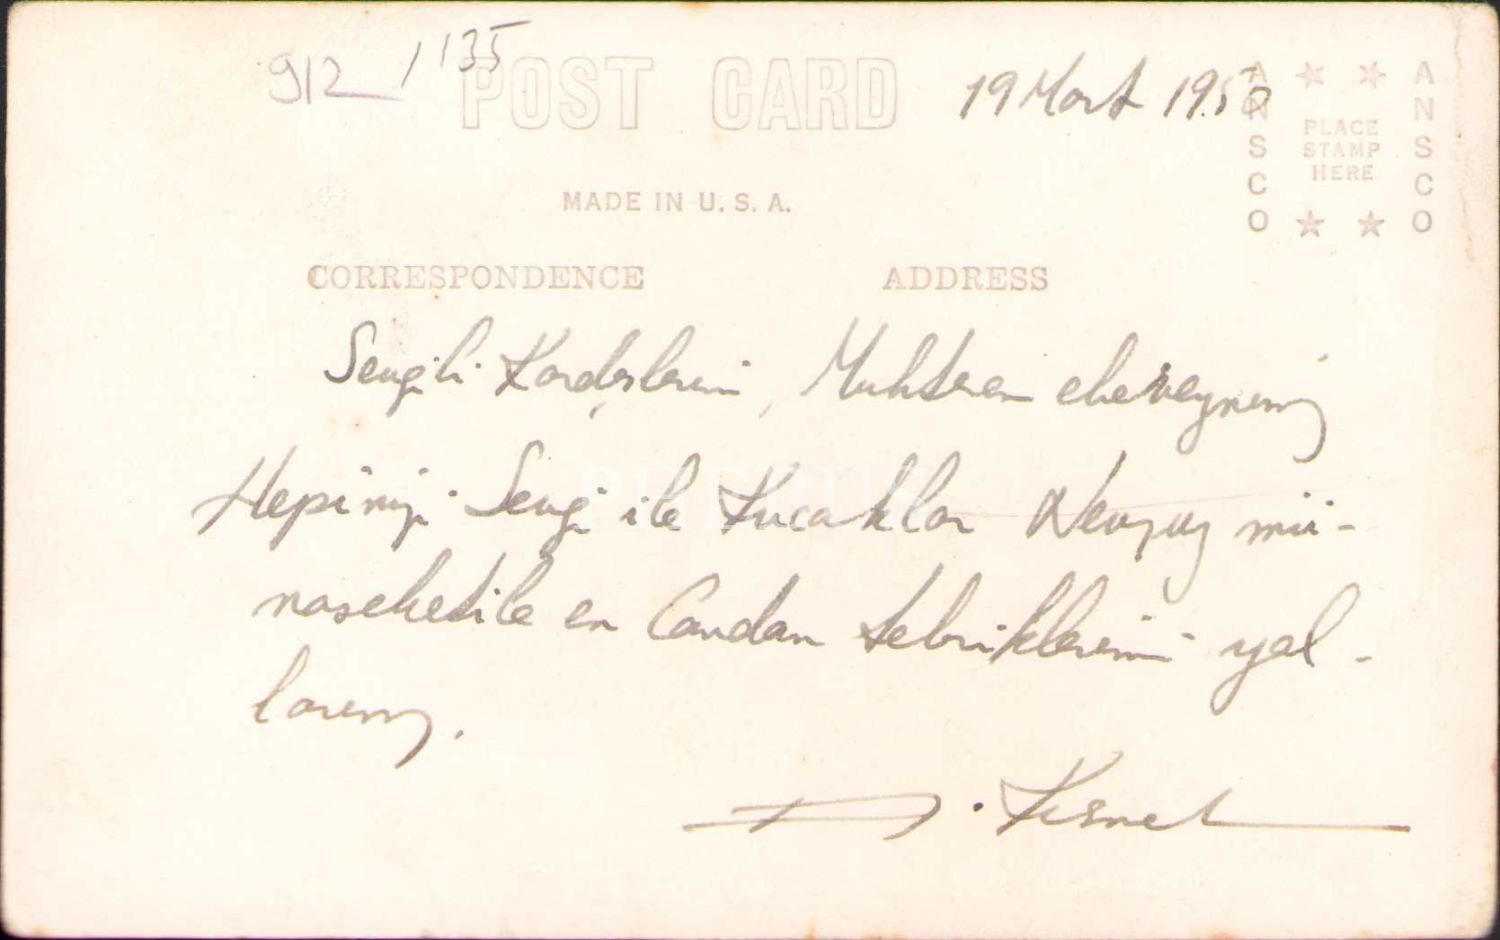 912 / 135
POST CARD
19 Mart 1950
ANSCO
PLACE
STAMP
HERE
ANSCO
MADE IN U. S. A.
CORRESPONDENCE
ADDRESS
Sevgili Kardeşlerim, Muhterem ebeveynim
Hepinizi Sevgi ile Kucaklar Nevruz mü-
nasebetile en Candan tebriklerimi yol-
larım.
. Kısmet